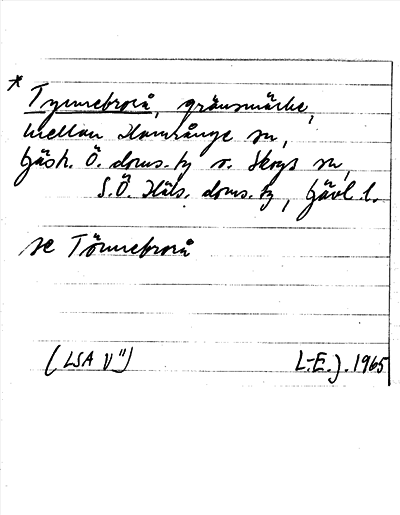 * Tynnebrorå, gränsmärke,
mellan Hamrånge sn,
Gästr. Ö. doms. tg o. Skogs sn,
S.Ö. Häls. doms. tg, Gävl. l.
se Tönnebrorå
(LSA V") L.-E. J. 1965